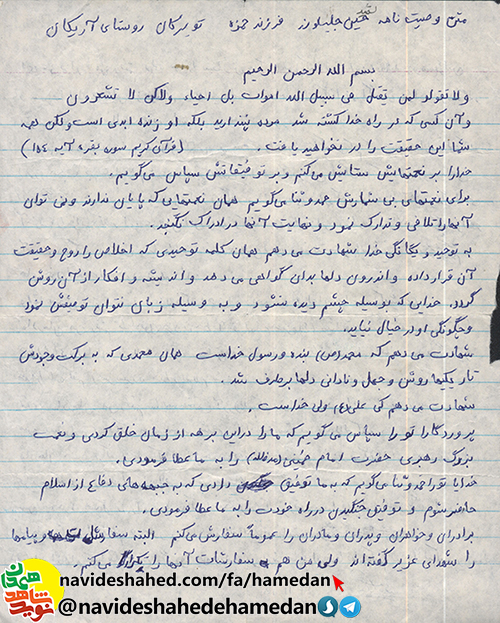 متن وصیت نامه شهید حسین جلیلوند فرزند حمزه تویسرکان روستای آریکان
بسم الله الرحمن الرحیم
ولا تقولو لمن یقتل فی سبیل الله اموات بل احیاء ولاکن لا تشعرون
وآن کسی که در راه خدا کشته شد مرده نپندارید بلکه او زنده ابدی است ولکن همه
شما این حقیقت را در نخواهید یافت. (قرآن کریم سوره بقره آیه ۱۵۴)
خدا را بر نعمتهایش ستایش می‌کنم و بر توفیقاتش سپاس می‌گویم.
برای نعمتهای بی شمارش حمد و ثنا می‌گویم همان نعمتهایی که پایان ندارند ونمی توان
آنها را تلافی و تدارک نمود و نهایت آنها در ادراک نگنجد.
به توحید و یگانگی خدا شهادت می دهم همان کلمه توحیدی که اخلاص را روح و حقیقت
آن قرار داده و اندرون دلها بدان گواهی می دهد و اندیشه و افکار از آن روشن
گردد. خدایی که بوسیله چشم دیده نشود و به وسیله زبان نتوان توصیفش نمود
و چگونگی او در خیال نیاید.
شهادت می دهم که محمد (ص) بنده و رسول خداست همان محمدی که به برکت وجودش
تاریکیها روشن و جهل و نادانی دلها برطرف شد.
شهادت می دهم کی علی (ع) ولی خداست.
پروردگارا تو را سپاس می‌گویم که ما را در این برهه از زمان خلق کردی و نعمت
بزرگ رهبری حضرت امام خمینی (مدظله) را به ما عطا فرمودی.
خدایا تو را حمد و ثنا می‌گویم که به ما توفیق دادی که به جبهه های دفاع از اسلام
حاضر شوم و توفیق جنگیدن در راه خودت را به ما عطا فرمودی.
برادران و خواهران و پدران و مادران را عموماً سفارش می‌کنم البته سفارش و پیامها
را شهدای عزیز گفته‌اند ولی من هم سفارشات آنها را تکرار می‌کنم.
نوید شاهد همدان
navideshahed.com/fa/hamedan
@navideshahedehamedan